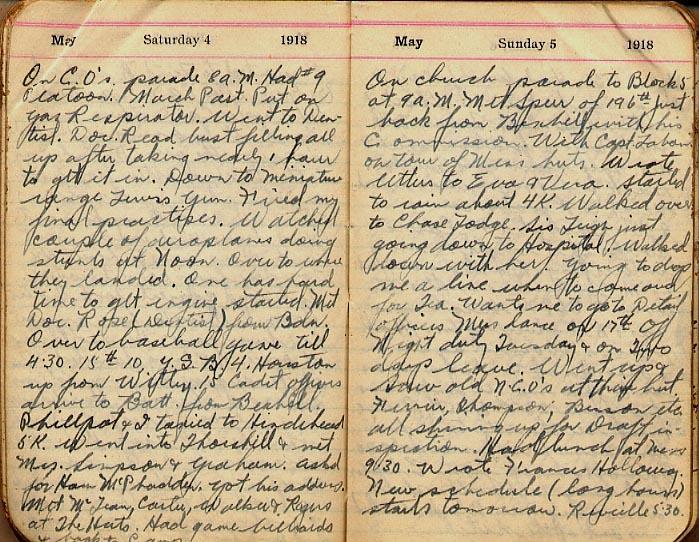 May Saturday 4 1918
On C.O's. parade 8 a.M. Had #9
Platoon. March Past. Put on
Gaz Respirator. Went to Den-
tist. Doc. Read bust filling all
up after taking nearly 1 hour
to get it in. Down to Meniature
range Lewis Gun. Fired my
final practises. Watched
couple of aeroplanes doing
stunts at Noon. Over to where
they landed. One has hard
time to get engine started. Met
Doc. Rose (Dentist) from Bdn.
Over to baseball game till
4.30. 15th 10, Y.S.B. 4. Houston
up from Witley. 15 Cadet officers
arrive to Batt. from Bexhill.
Phillpot & I taxied to Hindehead
5K. Went into Thorshill & met
Mrs. Simpson & Graham. asked
for Ham McPhadden. Got his address.
Met McLean, Carter, Walker & Rogers
at The Huts. Had game billiards
& back to Camp
May Sunday 5 1918
On church parade to Block 5
at 9 a.M. Met Spur of 196th just
back from Bexhill with his
Commission. With Capt.
on tour of Mens huts. Wrote
letters to Eva & Vera. Started
to rain about 4K. Walked over
to Chase Lodge. Sis Leigh just
going down to Hospital. Walked
down with her. Going to drop
me a line when to come over
for Tea. Wants me to go to Detail
officers Mess dance on 17th. Off
Night duty Tuesday & on Two
days leave. Went up &
saw old N.C.O's at their hut
Ferrier, Thompson, etc.
all shining up for Draft in-
spection. Had lunch at mess
9.30. Wrote Francis Holloway.
New schedule (long hours)
starts tomorrow. Reveille 5.30.